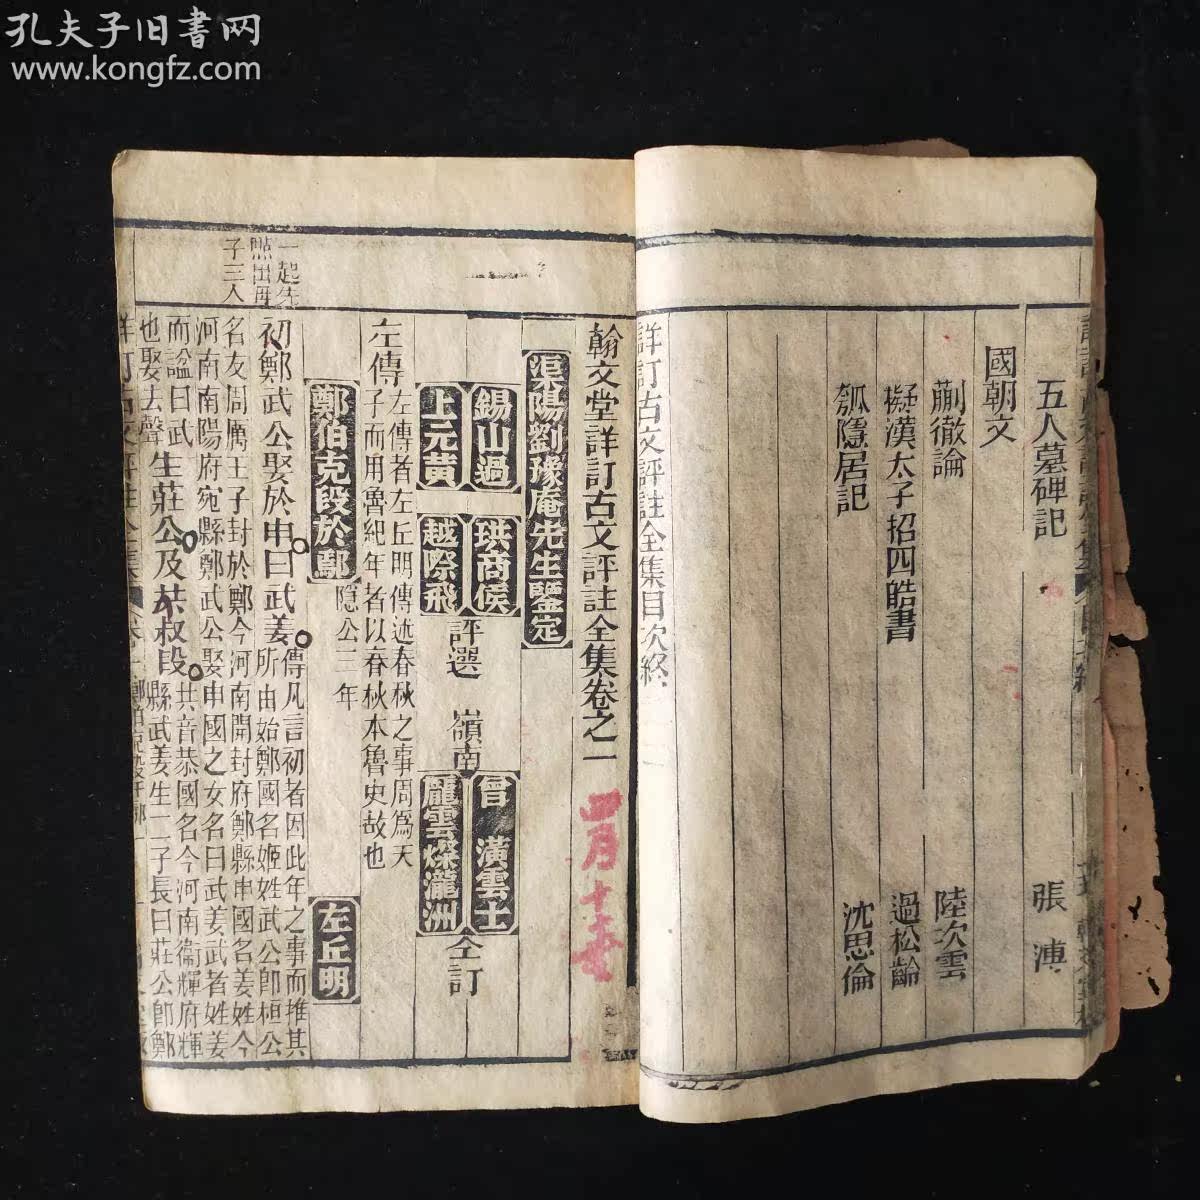 孔夫子旧書网
www.kongfz.com
五人墓碑記 張溥
國朝文
蒯徹論 陸次雲
擬漢太子招四皓書 過松齡
瓠隱居記 沈思倫
詳訂古文評註全集目次終
翰文堂詳訂古文評註全集卷之一
四月十
渠陽劉豫庵先生鑒定
錫山過 珙商侯
上元黃 越際飛
評選
嶺南
曾 潢雲士
龐雲燦瀧洲
仝訂
左傳
左傳者左丘明傳述春秋之事周爲天
子而用魯紀年者以春秋本魯史故也
鄭伯克段於鄢 隱公三年 左丘明
一起先
照出母
子三人
初鄭武公娶於申曰武姜
傳凡言初者因此年之事而推其
所由始鄭國名姬姓武公卽桓公
名友周厲王子封於鄭今河南開封府鄭縣申國名姜姓今
河南南陽府宛縣鄭武公娶申國之女名曰武姜武者姓姜
而諡曰武
也娶去聲
生莊公及共叔段
共音恭國名今河南衞輝府輝
縣武姜生二子長曰莊公卽鄭